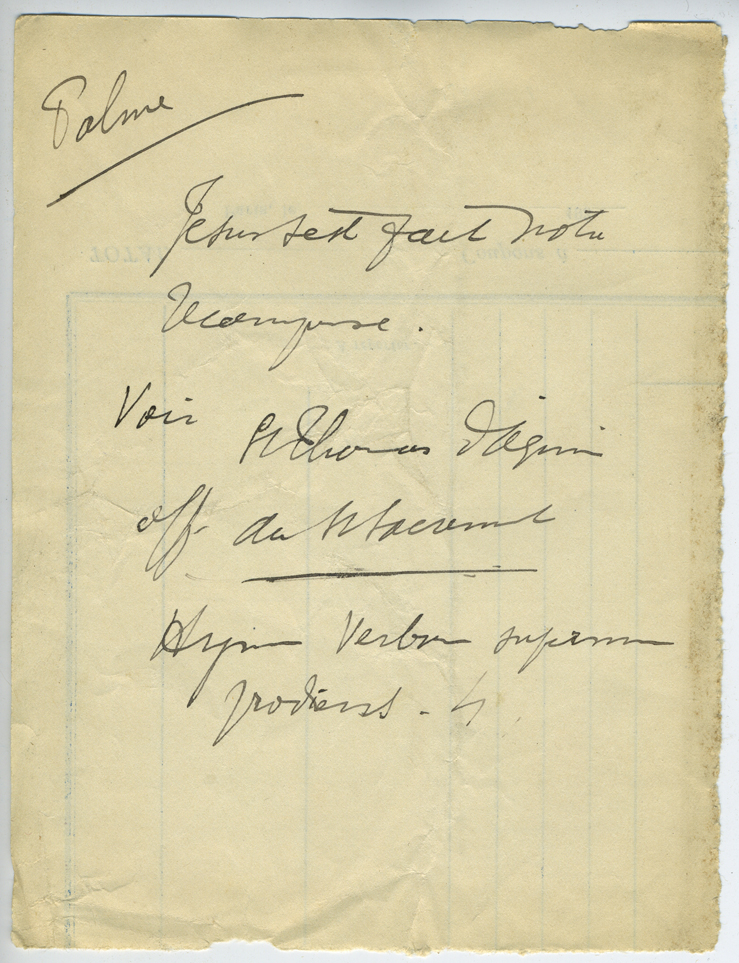 Palme
Jésus s'est fait notre
récompense.
Voir St Thomas d'Aquin
off. du St Sacrement
Hymne Verbum supernum
prodiens - 4